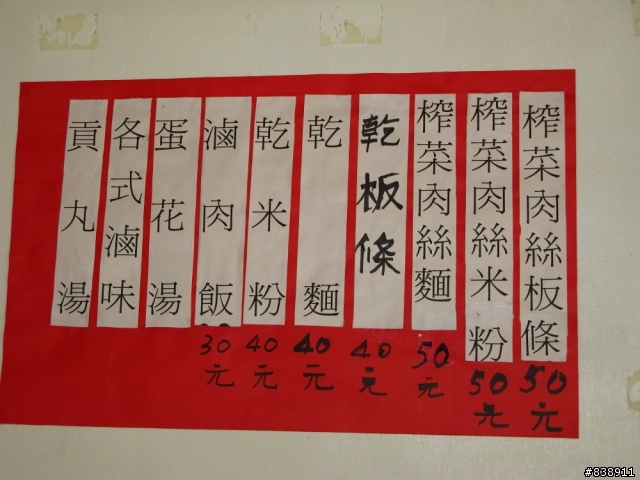 榨菜肉絲板條 50元
榨菜肉絲米粉 50元
榨菜肉絲麵 50元
乾板條 40元
乾麵 40元
乾米粉 40元
滷肉飯 30元
蛋花湯
各式滷味
貢丸湯
#838911